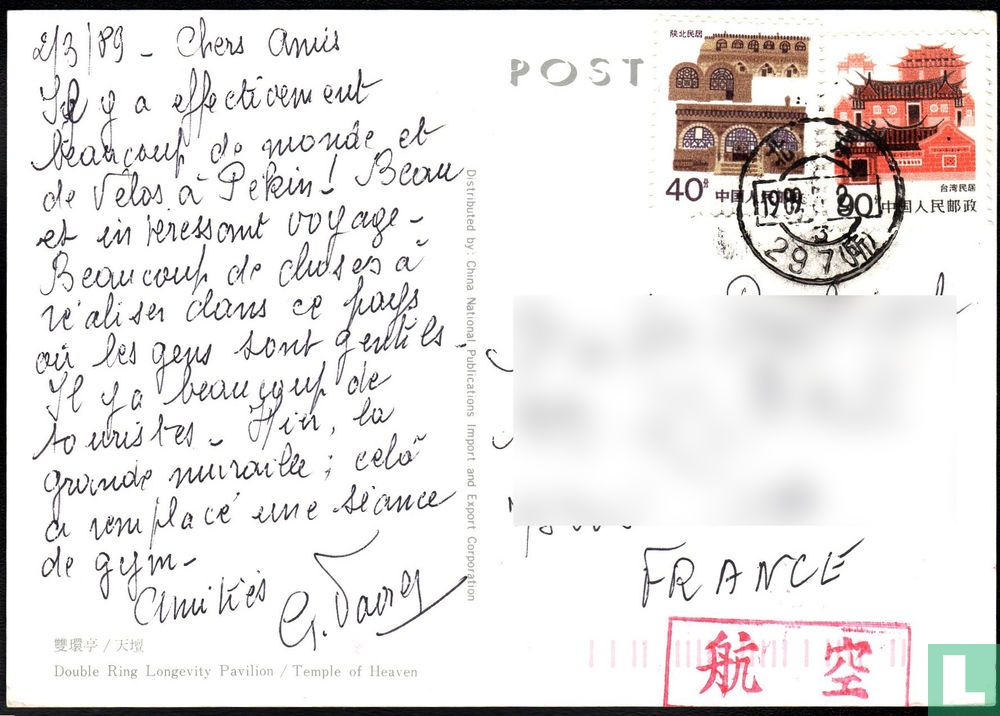 2/3/89 - Chers Amis
Il y a effectivement
beaucoup de monde et
de Vélos à Pékin! Beau
et intéressant voyage -
Beaucoup de choses à
réaliser dans ce pays
où les gens sont gentils -
Il y a beaucoup de
touristes - Hier, la
grande muraille; celà
a remplacé une séance
de gym -
Amitiés
G.
雙環亭 / 天壇
Double Ring Longevity Pavilion / Temple of Heaven
Distributed by: China National Publications Import and Export Corporation
POST
陕北民居
40分
中国人民邮政
台湾民居
90
中国人民邮政
3
297
FRANCE
航空
L